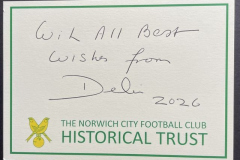 With All Best
Wishes from
Delia
2026
THE NORWICH CITY FOOTBALL CLUB
HISTORICAL TRUST